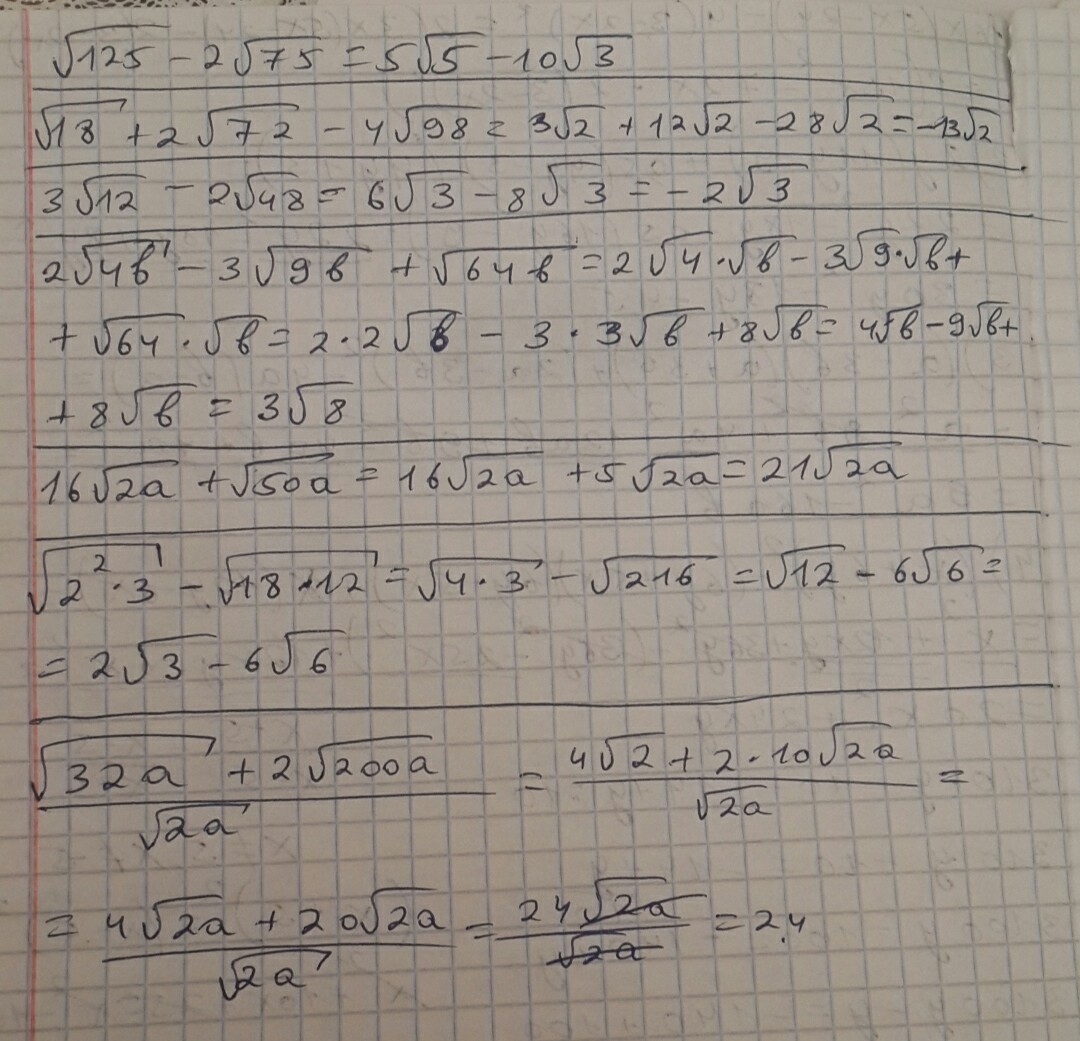 √125 - 2√75 = 5√5 - 10√3
√18 + 2√72 - 4√98 = 3√2 + 12√2 - 28√2 = -13√2
3√12 - 2√48 = 6√3 - 8√3 = -2√3
2√4в - 3√9в + √64в = 2√4·√в - 3√9·√в +
+ √64·√в = 2·2√в - 3·3√в + 8√в = 4√в - 9√в +
+ 8√в = 3√8
16√2a + √50a = 16√2a + 5√2a = 21√2a
√2²·3 - √18·12 = √4·3 - √216 = √12 - 6√6 =
= 2√3 - 6√6
(√32a + 2√200a)/√2a = (4√2 + 2·10√2a)/√2a =
= (4√2a + 20√2a)/√2a = 24√2a/√2a = 24